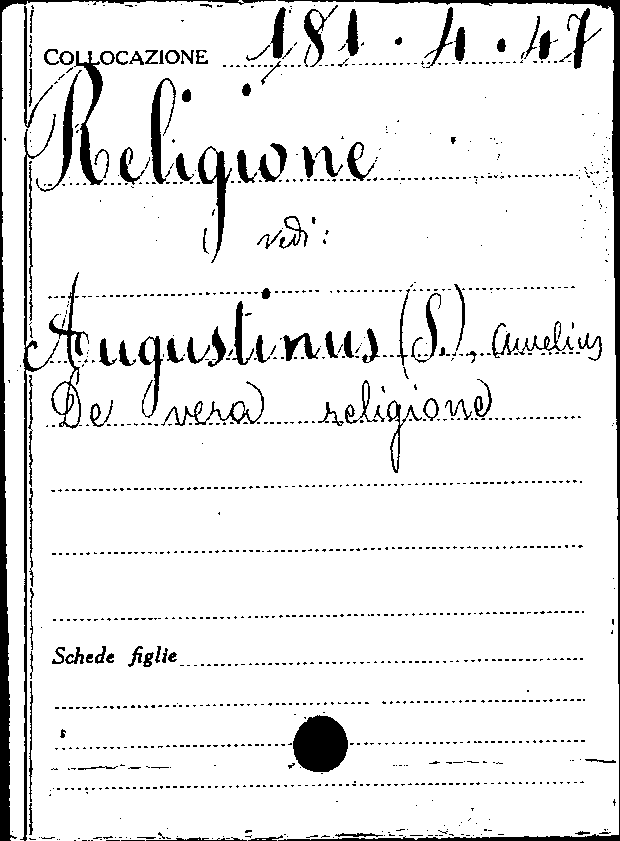 COLLOCAZIONE 181.4.47
Religione
vedi:
Augustinus (S.), Aurelius
De vera religione
Schede figlie